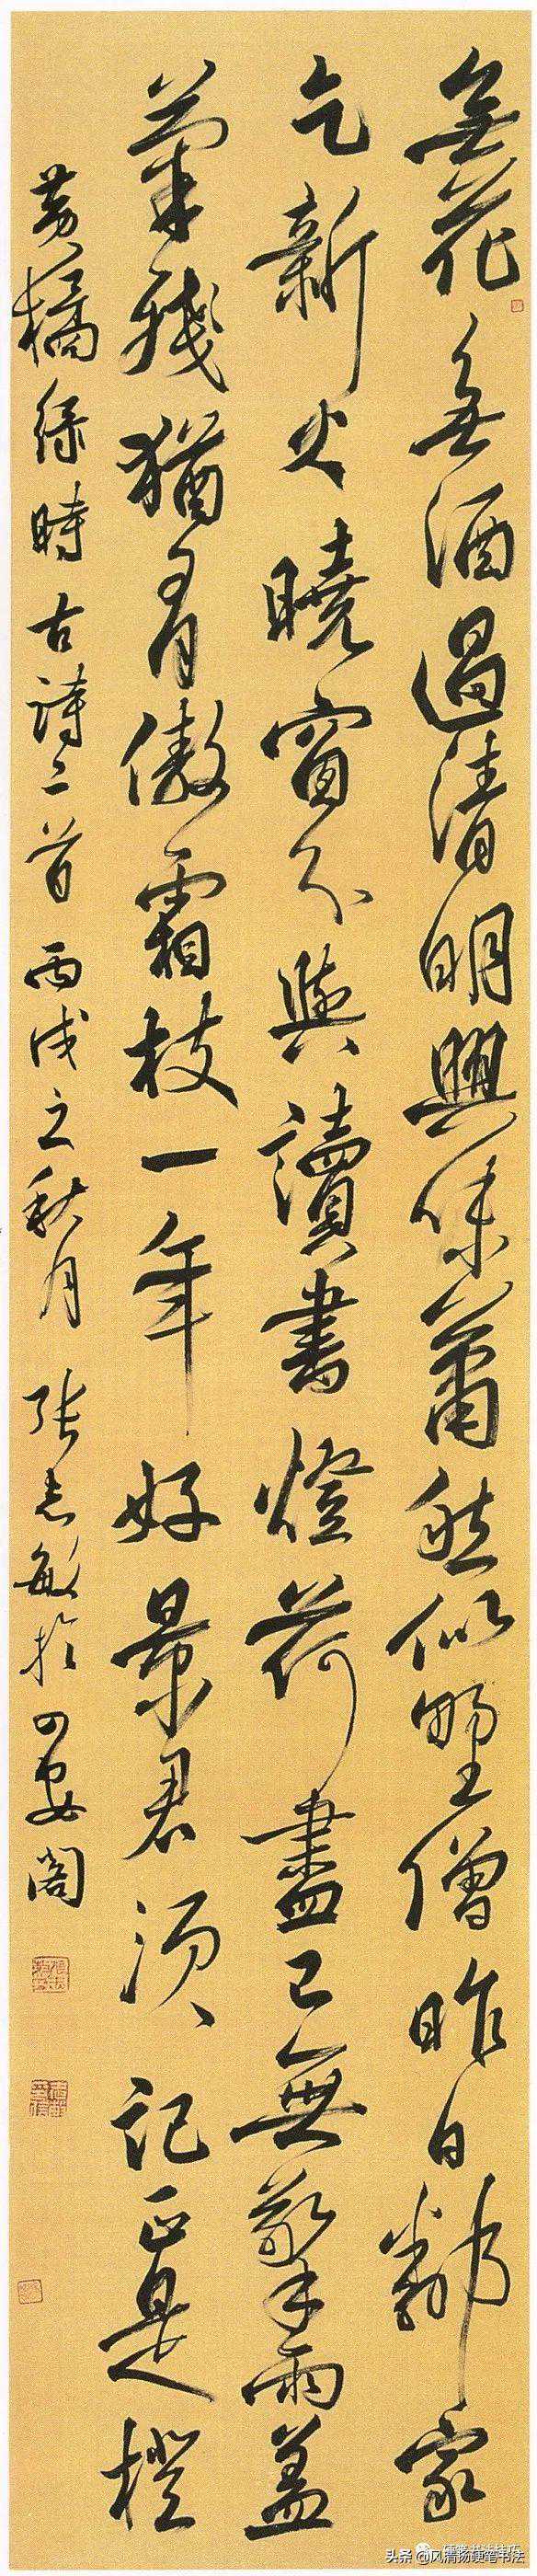 無花無酒過清明興味蕭然似野僧昨日鄰家
乞新火曉窗分與讀書燈荷盡已無擎雨蓋
菊殘猶有傲霜枝一年好景君須記正是橙
黄橘綠時古詩二首丙戌之秋月張志敏於四宜閣
头条@风清扬硬笔书法